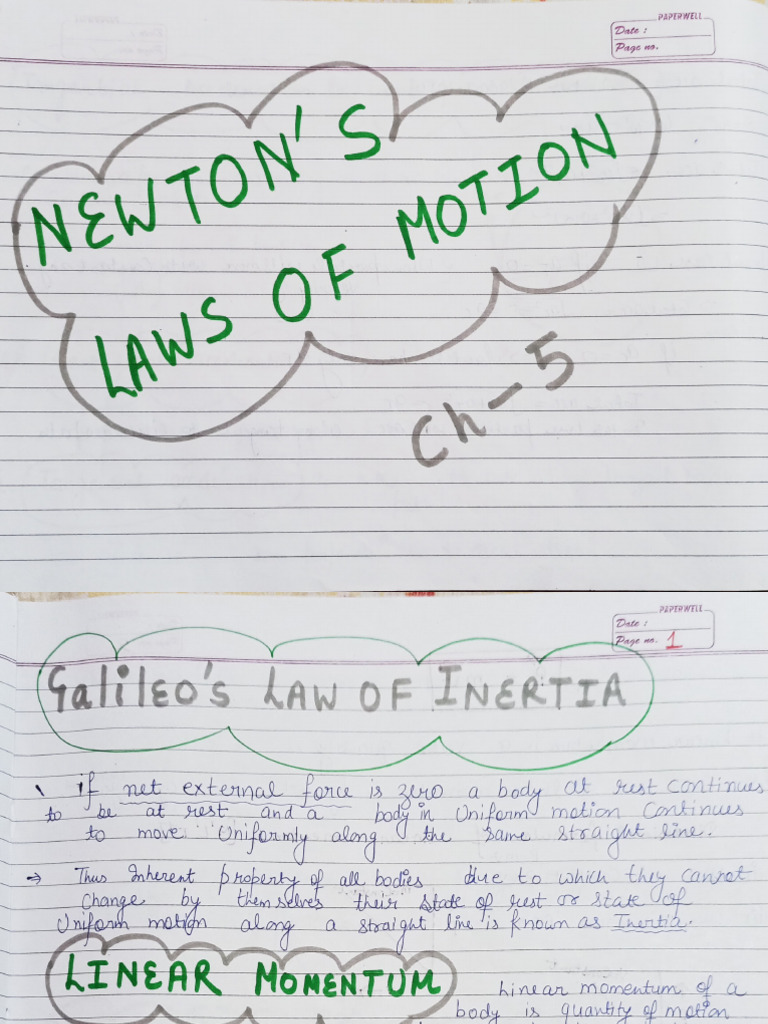 PAPERWELL
Date :
Page no.
NEWTON'S
LAWS OF MOTION
Ch-5
PAPERWELL
Date :
Page no. 1
Galileo's LAW OF INERTIA
if net external force is zero a body at rest continues
to be at rest and a body in Uniform motion Continues
to move Uniformly along the same straight line.
→ Thus Inherent property of all bodies due to which they cannot
change by themselves their state of rest or state of
Uniform motion along a straight line is known as Inertia.
LINEAR MOMENTUM
Linear momentum of a
body is quantity of motion